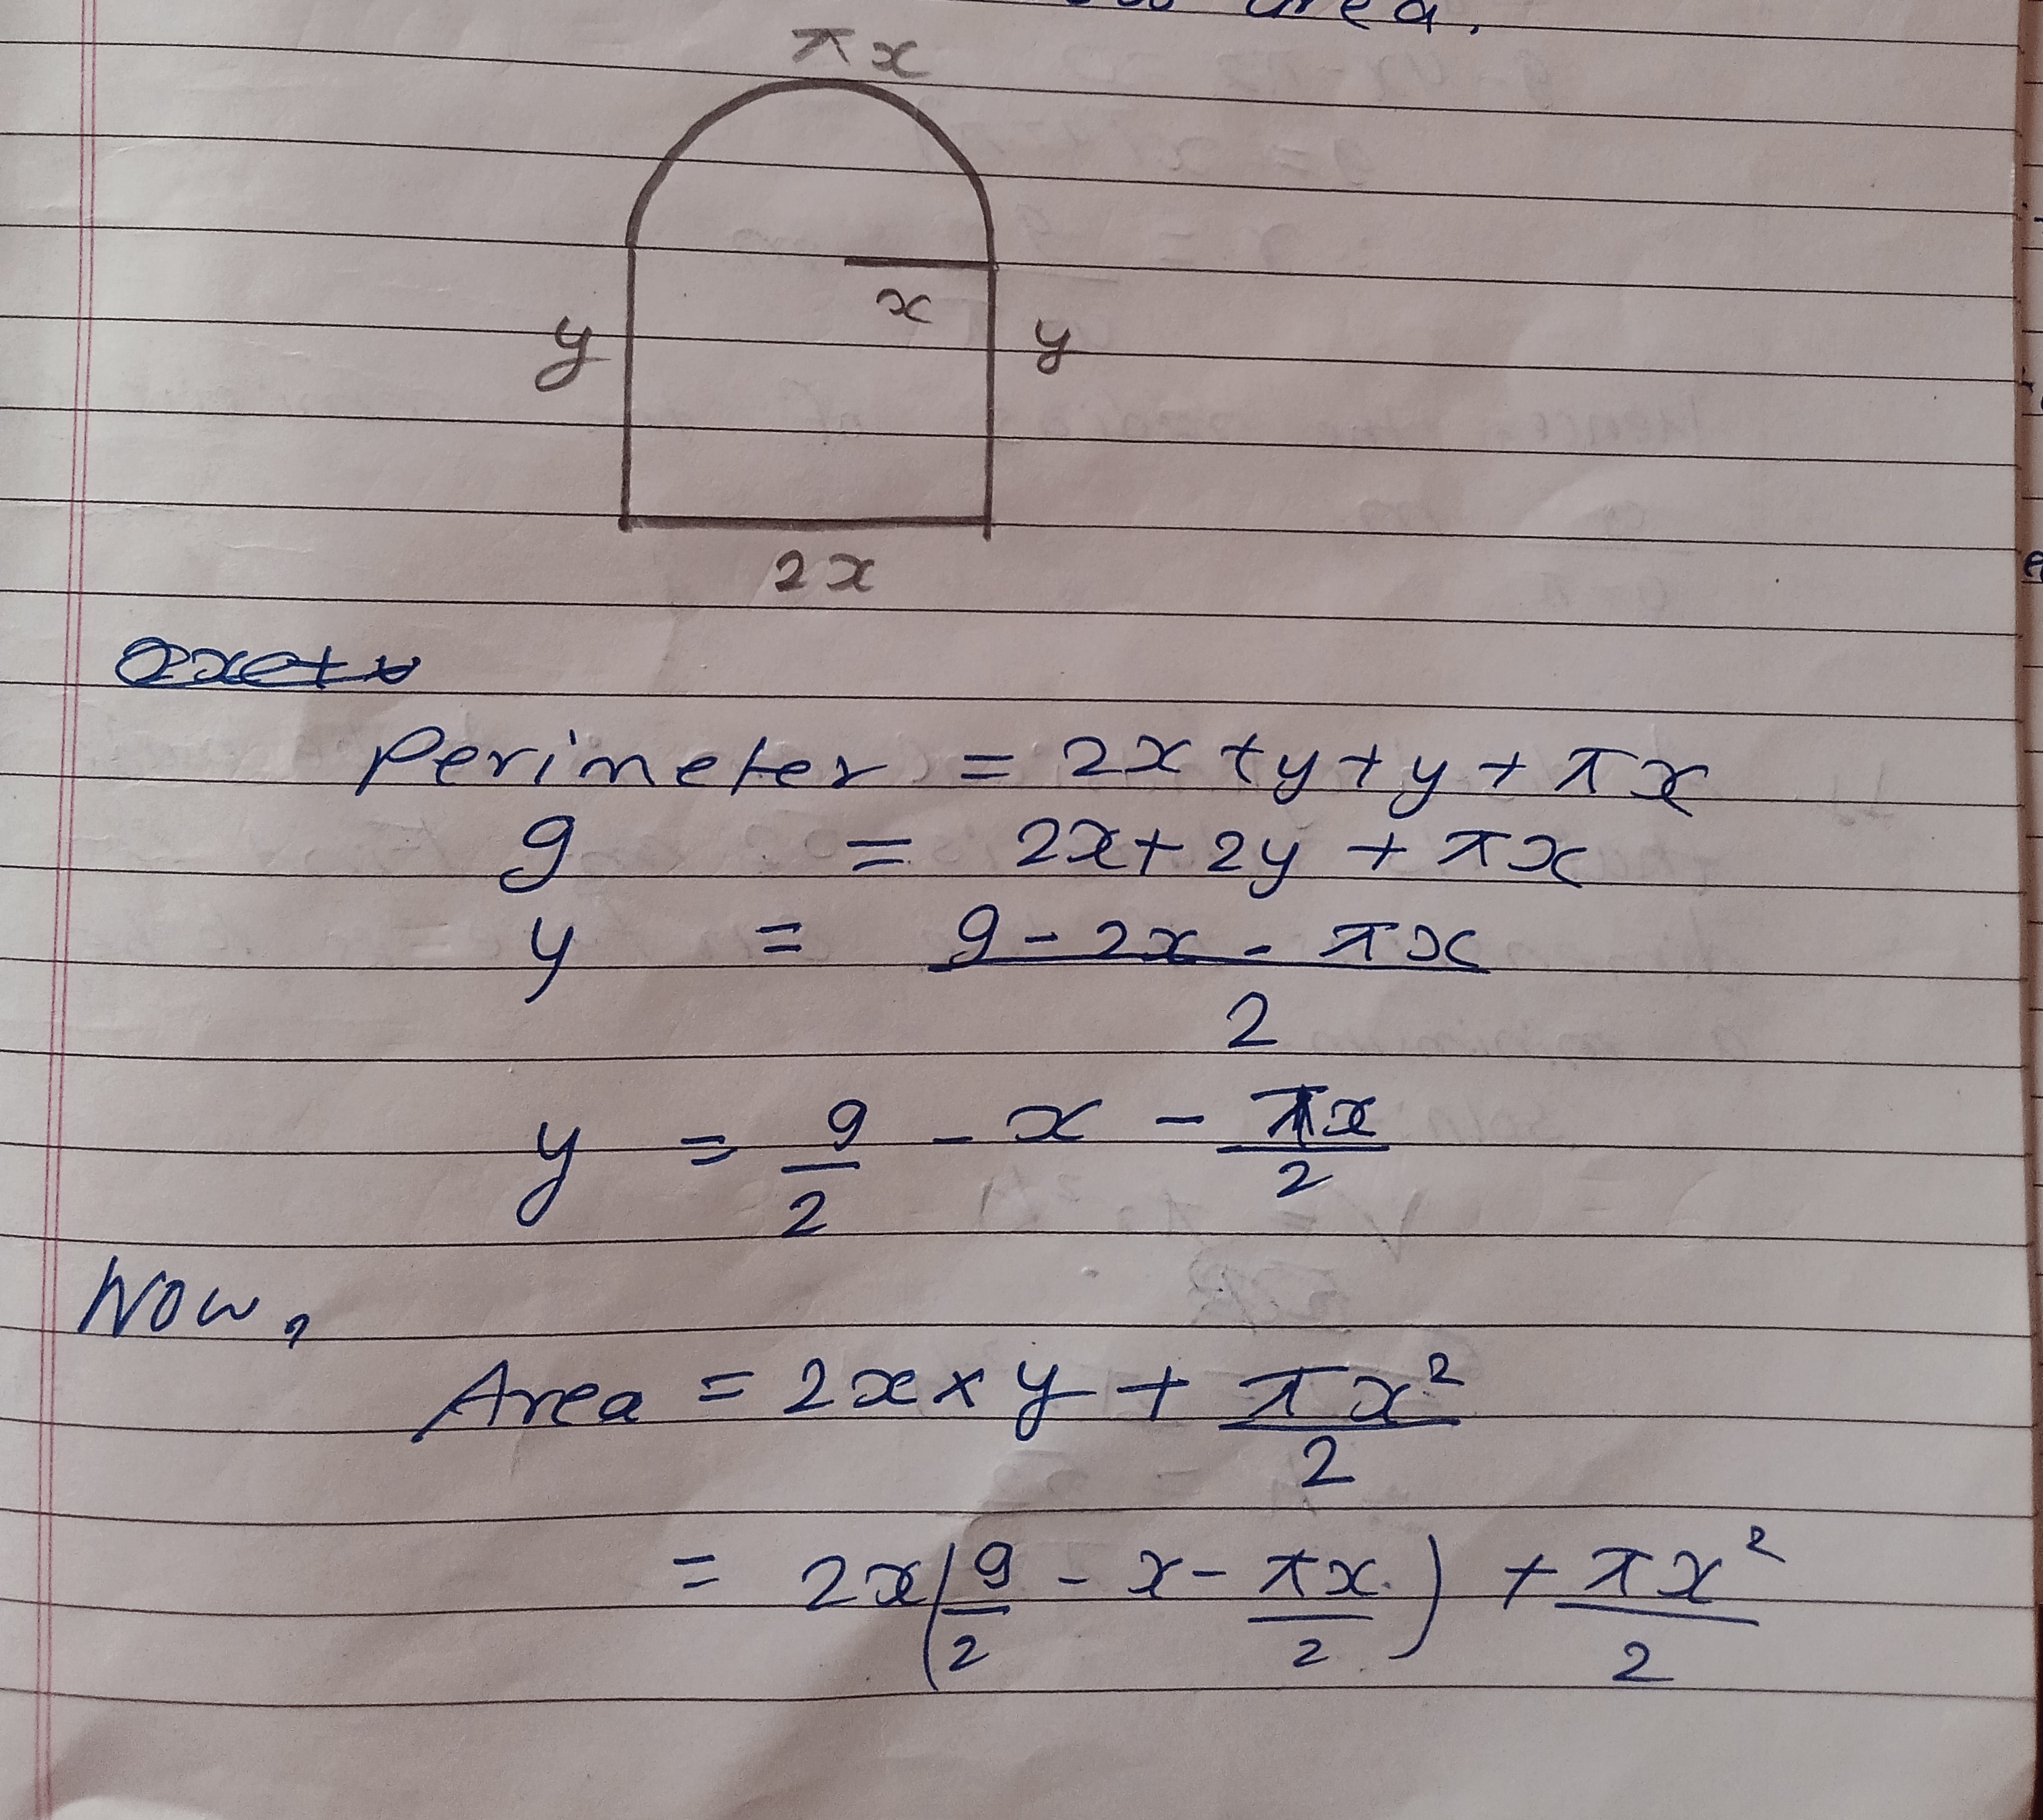 area.
πx
x
y y
2x
Perimeter = 2x + y + y + πx
9 = 2x + 2y + πx
y = (9 - 2x - πx)/2
y = 9/2 - x - πx/2
Now,
Area = 2x × y + πx²/2
= 2x(9/2 - x - πx/2) + πx²/2